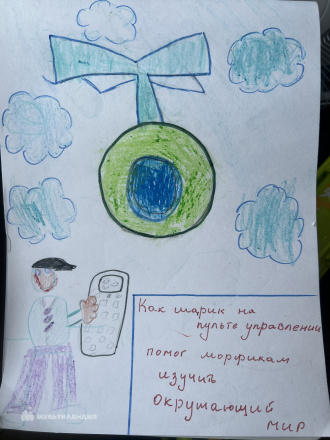 Как шарик на
пульте управления
помог морфикам
изучить
окружающий
мир
МУЛЬТИЛАНДИЯ